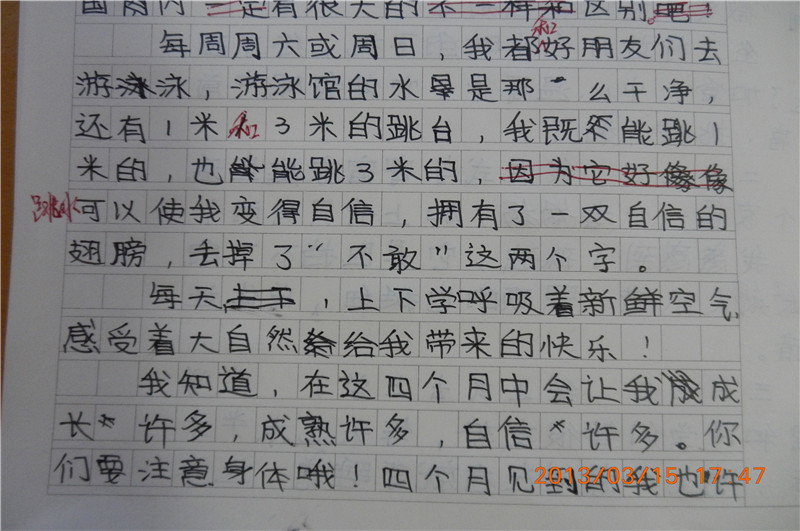 国有内一定有很大的不一样和区别吧！
每周周六或周日，我都和好朋友们去
游泳，游泳馆的水是那么干净，
还有1米和3米的跳台，我既能跳1
米的，也能跳3米的，因为它好像像
跳水可以使我变得自信，拥有了一双自信的
翅膀，丢掉了“不敢”这两个字。
每天上下，上下学呼吸着新鲜空气，
感受着大自然给我带来的快乐！
我知道，在这四个月中会让我成
长许多，成熟许多，自信许多。你
们要注意身体哦！四个月见到的我也许
2013/03/15 17:47